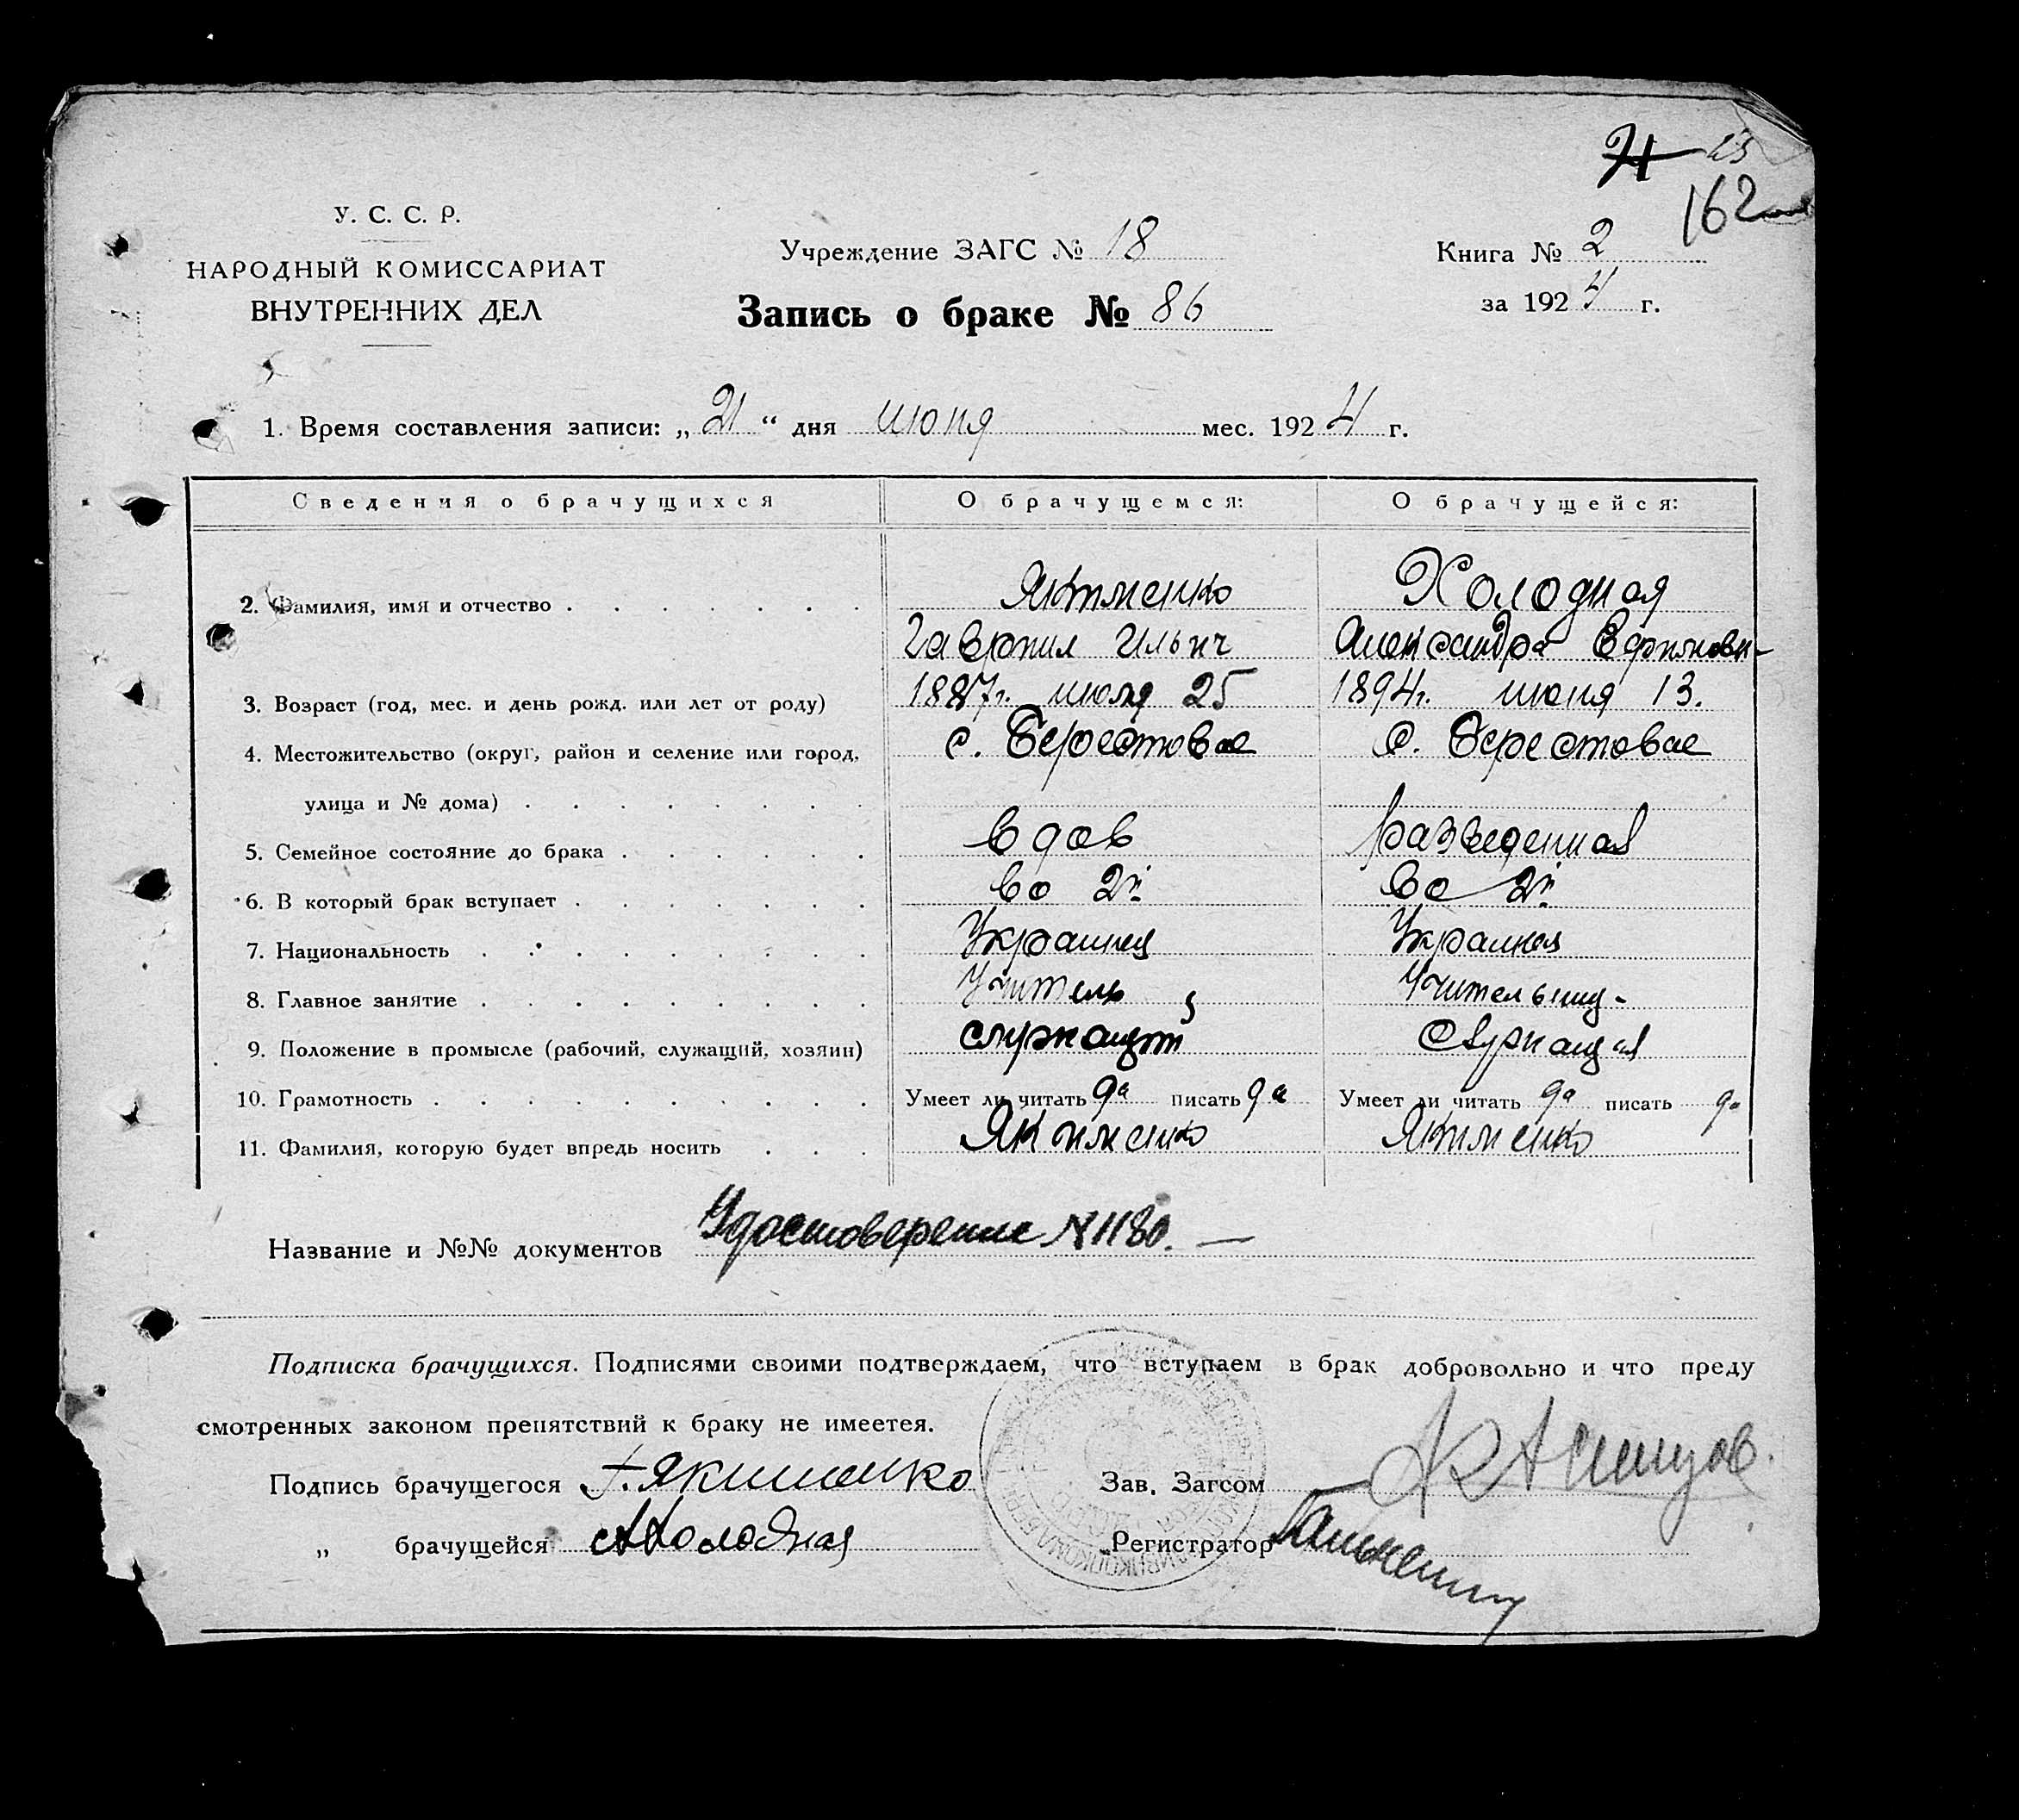 71 23
162
У. С. С. Р.
НАРОДНЫЙ КОМИССАРИАТ
ВНУТРЕННИХ ДЕЛ
Учреждение ЗАГС № 18
Запись о браке № 86
Книга № 2
за 1924 г.
1. Время составления записи: „21“ дня июня мес. 1924 г.
Сведения о брачущихся О брачущемся: О брачущейся:
2. Фамилия, имя и отчество Якименко Холодная
Гавриил Ильич Александра
3. Возраст (год, мес. и день рожд. или лет от роду) 1887г. июля 25 1894г. июня 13.
4. Местожительство (округ, район и селение или город, с. Берестовае с. Берестовае
улица и № дома)
5. Семейное состояние до брака вдов разведенная
6. В который брак вступает во 2й во 2й
7. Национальность
8. Главное занятие Учитель,
9. Положение в промысле (рабочий, служащий, хозяин) служащий служащая
10. Грамотность Умеет ли читать да писать да Умеет ли читать да писать да
11. Фамилия, которую будет впредь носить Якименко Якименко
Название и №№ документов Удостоверение № 1180. —
Подписка брачущихся. Подписями своими подтверждаем, что вступаем в брак добровольно и что преду
смотренных законом препятствий к браку не имеетея.
Подпись брачущегося Г. Якименко Зав. Загсом
„ брачущейся АХолодная Регистратор